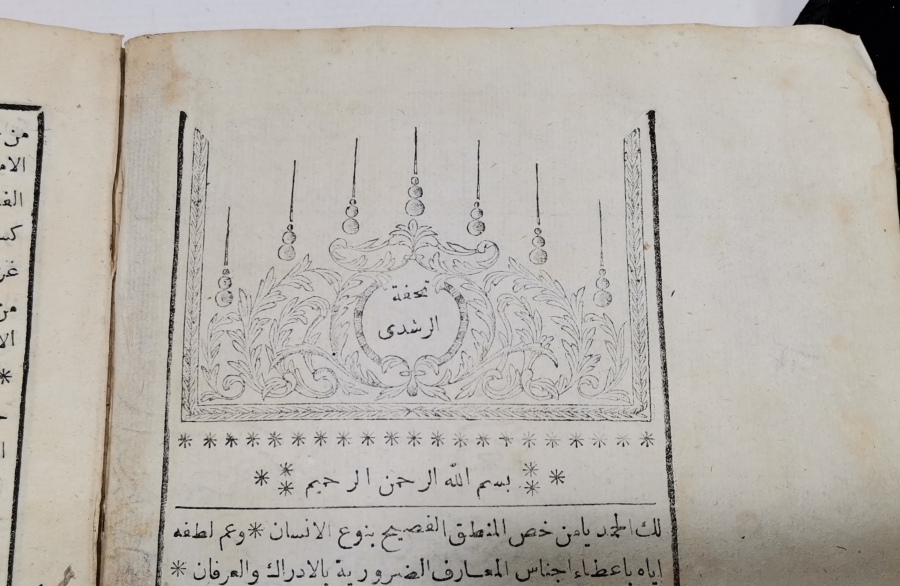 تحفة
الرشدى
بسم الله الرحمن الرحيم
لك الحمد يامن خص المنطق الفصيح بنوع الانسان * وعم لطفه
اياه باعطاء اجناس المعارف الضرورية بالادراك والعرفان *